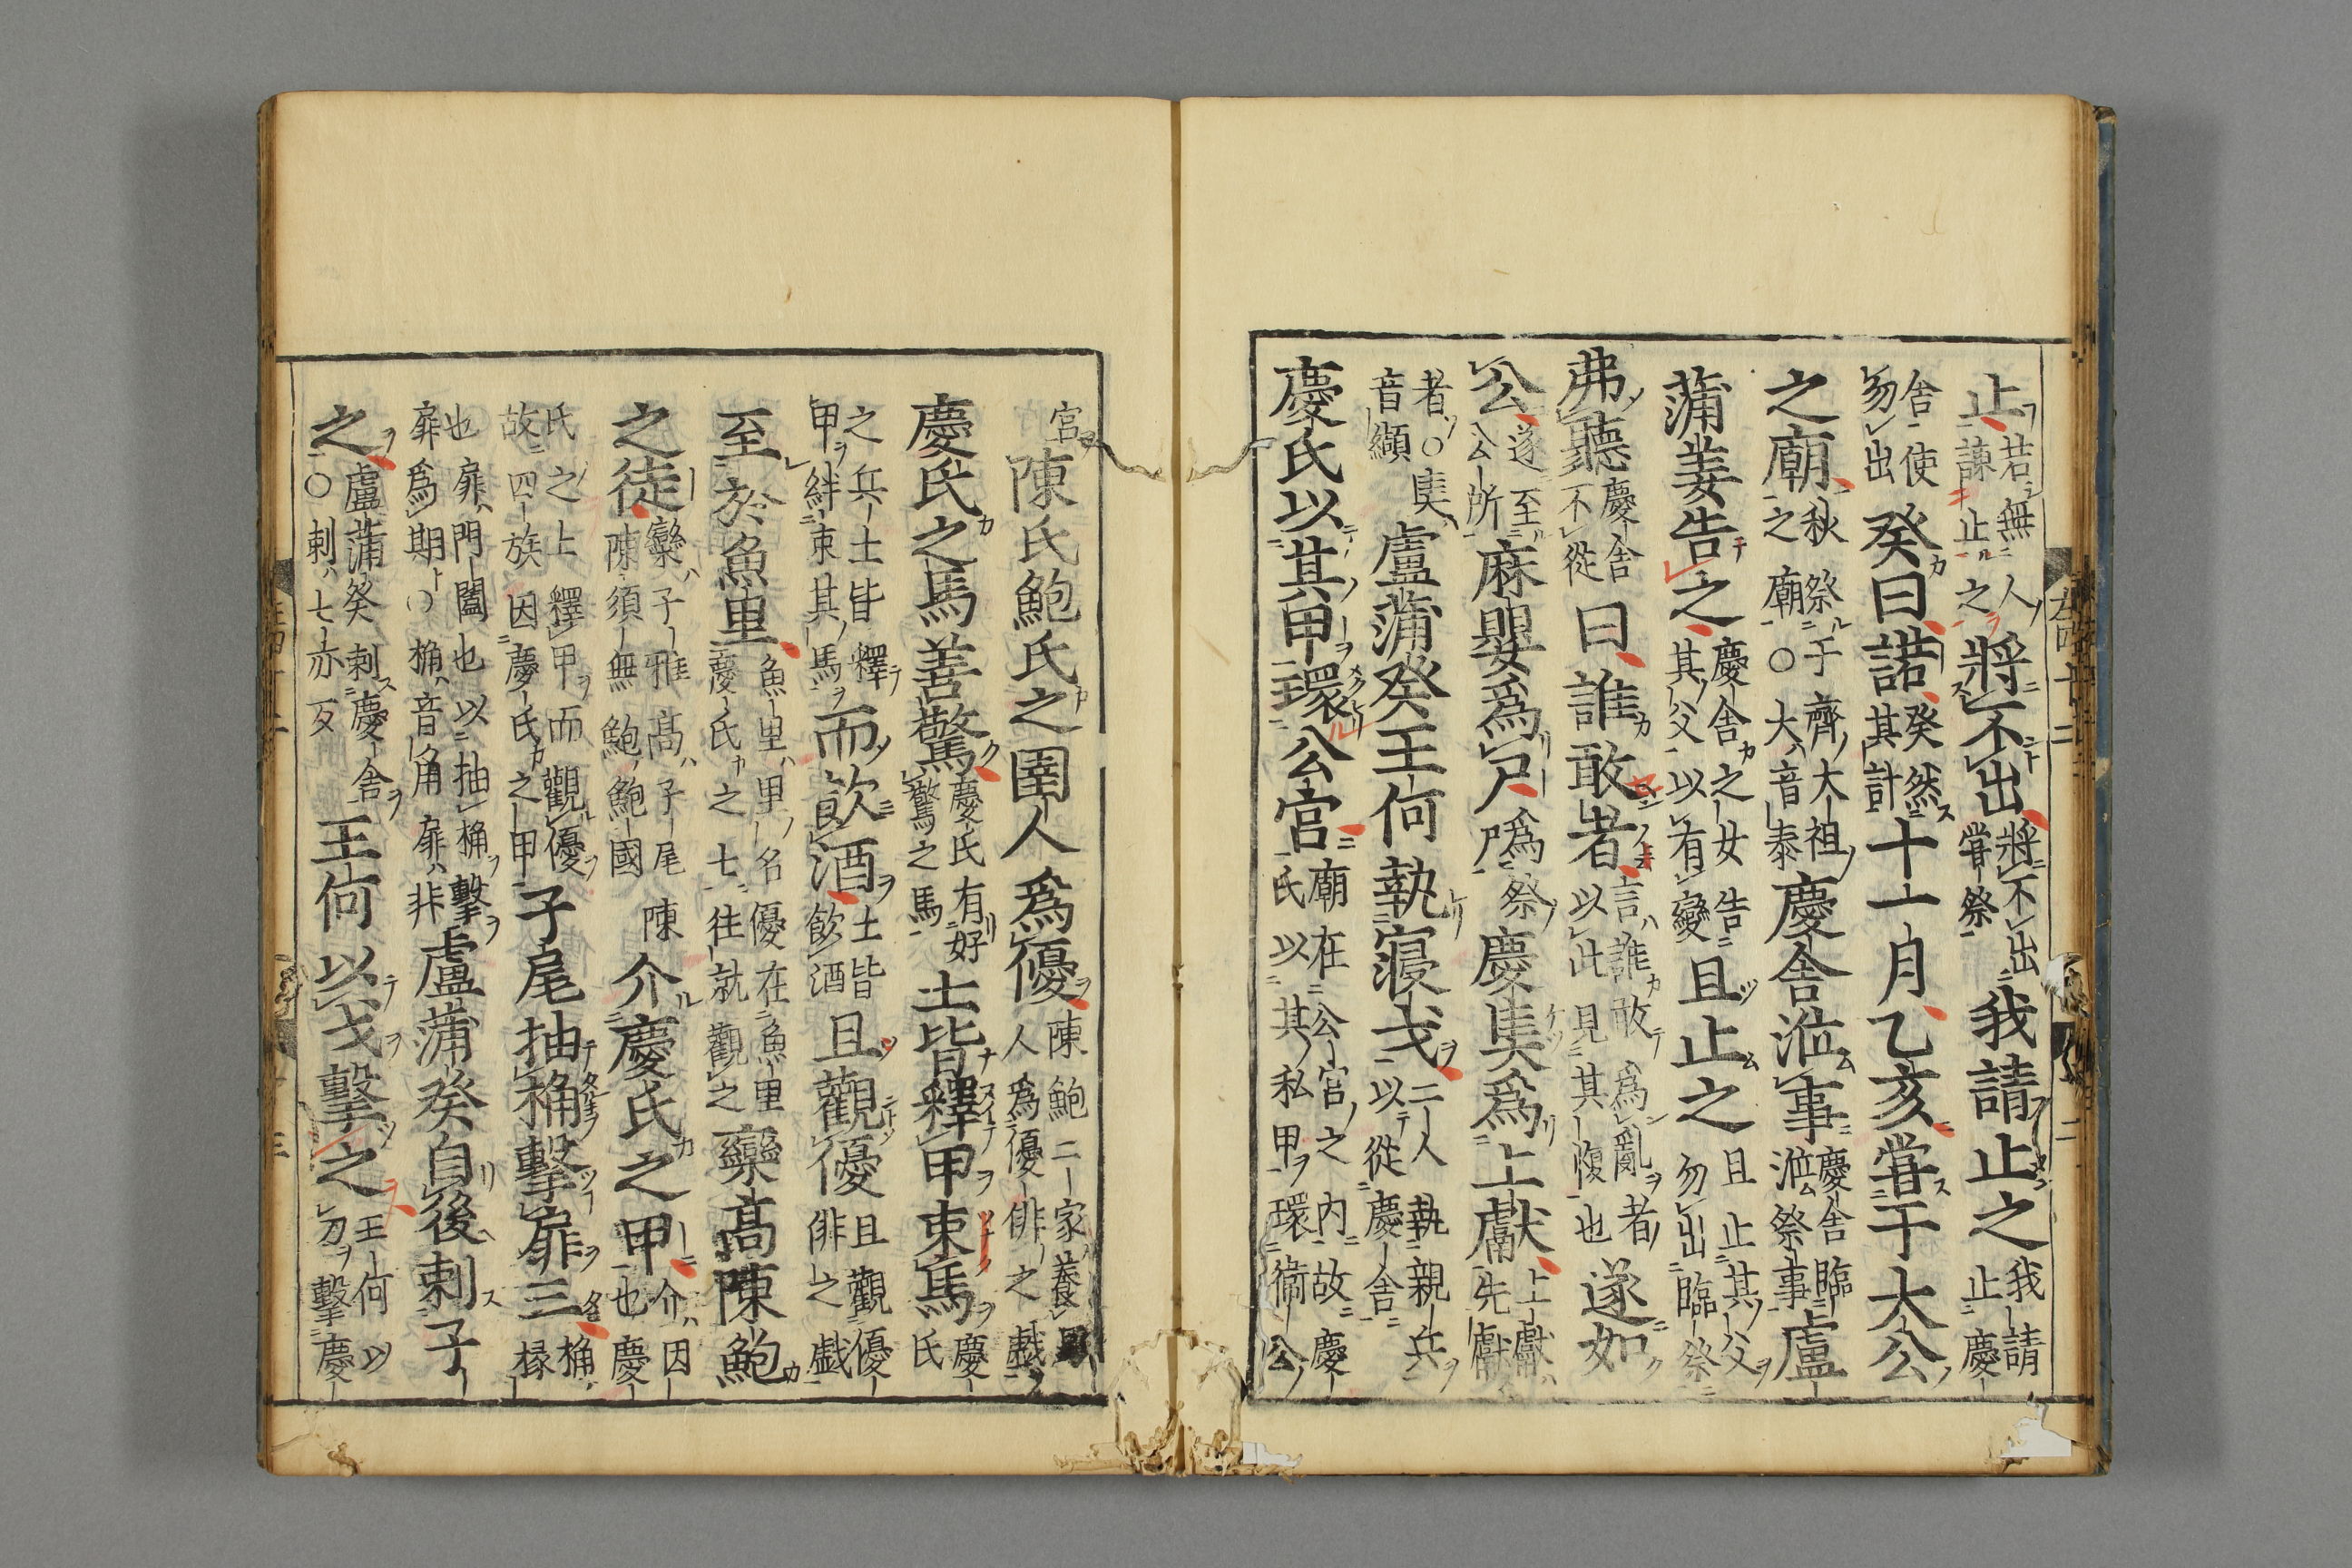 止若無人諫止之將不出將不出嘗祭我請止之我請止慶
舍使勿出癸曰諾癸然其計十一月乙亥嘗于大公
之廟秋祭于齊大祖之廟○大音泰慶舍涖事慶舍臨涖祭事盧
蒲姜告之慶舍之女告其父以有變且止之且止其父勿出臨祭
弗聽慶舍不從曰誰敢者言誰敢爲亂者以此見其愎也遂如
公遂至公所麻嬰爲尸爲祭尸慶𡙇爲上獻上獻先獻
者○𡙇音纈盧蒲癸王何執寢戈二人執親兵以從慶舍
慶氏以其甲環公宮廟在公宮之内故慶氏以其私甲環衞公
宮陳氏鮑氏之圉人爲優陳鮑二家養馬人爲優俳之戯
慶氏之馬善驚慶氏有好驚之馬士皆釋甲束馬慶氏
之兵士皆釋甲絆束其馬而飲酒士皆飲酒且觀優且觀優俳之戯
至於魚里魚里里名優在魚里慶氏之士往就觀之欒高陳鮑
之徒欒子雅高子尾陳須無鮑鮑國陳介慶氏之甲介因也慶
氏之士釋甲而觀優故四族因慶氏之甲子尾抽桷擊扉三桷椽
也扉門闔也以抽桷擊扉爲期○桷音角扉非盧蒲癸自後刺子
之盧蒲癸刺慶舍○刺七亦反王何以戈擊之王何以刀擊慶